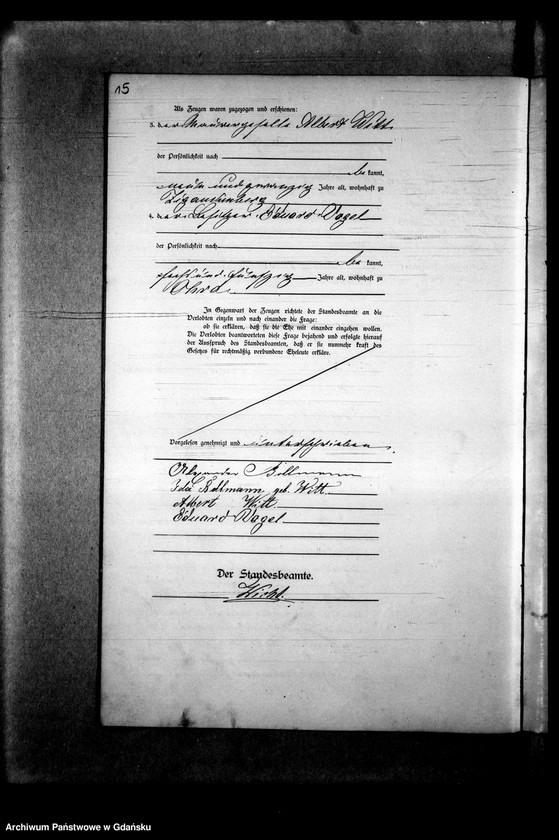 15
Als Zeugen waren zugezogen und erschienen:
3. der Maurergeselle Albert Witt
der Persönlichkeit nach
be kannt,
neun und zwanzig Jahre alt, wohnhaft zu
Zigankenberg
4. der Besitzer Eduard Vogel
der Persönlichkeit nach
be kannt,
sechs und fünfzig Jahre alt, wohnhaft zu
Ohra
In Gegenwart der Zeugen richtete der Standesbeamte an die
Verlobten einzeln und nach einander die Frage:
ob sie erklären, daß sie die Ehe mit einander eingehen wollen.
Die Verlobten beantworteten diese Frage bejahend und erfolgte hierauf
der Ausspruch des Standesbeamten, daß er sie nunmehr kraft des
Gesetzes für rechtmäßig verbundene Eheleute erkläre.
Vorgelesen genehmigt und unterschrieben.
Alexander Bellmann
Ida Bellmann geb. Witt
Albert Witt
Eduard Vogel
Der Standesbeamte.
Archiwum Państwowe w Gdańsku